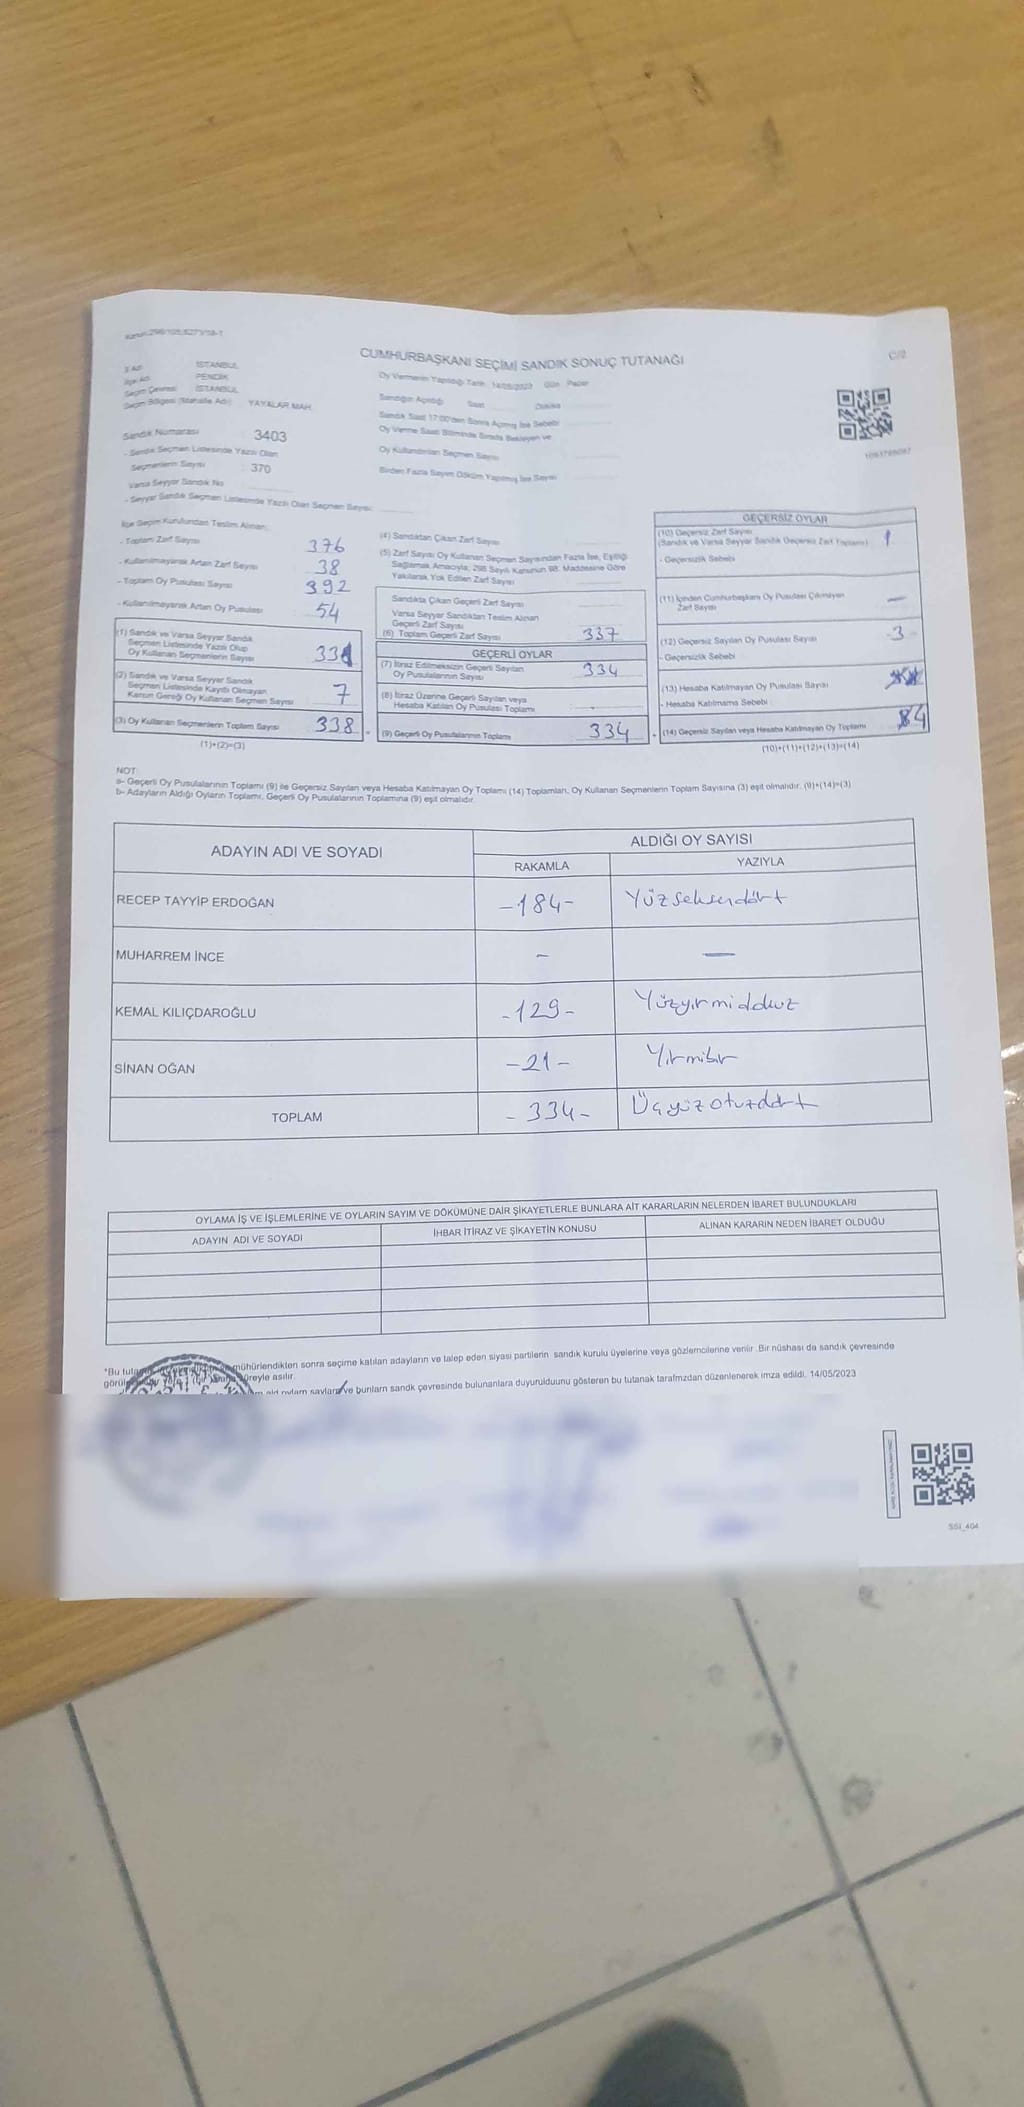 Kanun:298/105,6271/18-1
CUMHURBAŞKANI SEÇİMİ SANDIK SONUÇ TUTANAĞI
C/2
İl Adı İSTANBUL
İlçe Adı PENDİK
Seçim Çevresi İSTANBUL
Seçim Bölgesi (Mahalle Adı) YAYALAR MAH.
Sandık Numarası 3403
- Sandık Seçmen Listesinde Yazılı Olan
Seçmenlerin Sayısı 370
Varsa Seyyar Sandık No
- Seyyar Sandık Seçmen Listesinde Yazılı Olan Seçmen Sayısı
Oy Vermenin Yapıldığı Tarih 14/05/2023 Gün Pazar
Sandığın Açıldığı Saat Dakika
Sandık Saat 17:00'den Sonra Açılmış İse Sebebi
Oy Verme Saati Bitiminde Sırada Bekleyen ve
Oy Kullandırılan Seçmen Sayısı
Birden Fazla Sayım Döküm Yapılmış İse Sayısı
İlçe Seçim Kurulundan Teslim Alınan;
- Toplam Zarf Sayısı 376
- Kullanılmayarak Artan Zarf Sayısı 38
- Toplam Oy Pusulası Sayısı 392
- Kullanılmayarak Artan Oy Pusulası 54
(1) Sandık ve Varsa Seyyar Sandık
Seçmen Listesinde Yazılı Olup
Oy Kullanan Seçmenlerin Sayısı
(2) Sandık ve Varsa Seyyar Sandık
Seçmen Listesinde Kayıtlı Olmayan
Kanun Gereği Oy Kullanan Seçmen Sayısı 7
(3) Oy Kullanan Seçmenlerin Toplam Sayısı 338
(1)+(2)=(3)
(4) Sandıktan Çıkan Zarf Sayısı
(5) Zarf Sayısı Oy Kullanan Seçmen Sayısından Fazla İse, Eşitliği
Sağlamak Amacıyla, 298 Sayılı Kanunun 98. Maddesine Göre
Yakılarak Yok Edilen Zarf Sayısı
Sandıkta Çıkan Geçerli Zarf Sayısı
Varsa Seyyar Sandıktan Teslim Alınan
Geçerli Zarf Sayısı
(6) Toplam Geçerli Zarf Sayısı 337
GEÇERLİ OYLAR
(7) İtiraz Edilmeksizin Geçerli Sayılan
Oy Pusulalarının Sayısı 334
(8) İtiraz Üzerine Geçerli Sayılan veya
Hesaba Katılan Oy Pusulası Toplamı
(9) Geçerli Oy Pusulalarının Toplamı 334
GEÇERSİZ OYLAR
(10) Geçersiz Zarf Sayısı
(Sandık ve Varsa Seyyar Sandık Geçersiz Zarf Toplamı) 1
- Geçersizlik Sebebi
(11) İçinden Cumhurbaşkanı Oy Pusulası Çıkmayan
Zarf Sayısı —
(12) Geçersiz Sayılan Oy Pusulası Sayısı 3
- Geçersizlik Sebebi
(13) Hesaba Katılmayan Oy Pusulası Sayısı
- Hesaba Katılmama Sebebi
(14) Geçersiz Sayılan veya Hesaba Katılmayan Oy Toplamı 4
(10)+(11)+(12)+(13)=(14)
NOT:
a- Geçerli Oy Pusulalarının Toplamı (9) ile Geçersiz Sayılan veya Hesaba Katılmayan Oy Toplamı (14) Toplamları, Oy Kullanan Seçmenlerin Toplam Sayısına (3) eşit olmalıdır. (9)+(14)=(3)
b- Adayların Aldığı Oyların Toplamı, Geçerli Oy Pusulalarının Toplamına (9) eşit olmalıdır.
ADAYIN ADI VE SOYADI
ALDIĞI OY SAYISI
RAKAMLA YAZIYLA
RECEP TAYYİP ERDOĞAN -184- Yüzseksendört
MUHARREM İNCE - —
KEMAL KILIÇDAROĞLU -129- Yüzyirmidokuz
SİNAN OĞAN -21- Yirmibir
TOPLAM -334- Üçyüzotuzdört
OYLAMA İŞ VE İŞLEMLERİNE VE OYLARIN SAYIM VE DÖKÜMÜNE DAİR ŞİKAYETLERLE BUNLARA AİT KARARLARIN NELERDEN İBARET BULUNDUKLARI
ADAYIN ADI VE SOYADI İHBAR İTİRAZ VE ŞİKAYETİN KONUSU ALINAN KARARIN NEDEN İBARET OLDUĞU
*Bu mühürlendikten sonra seçime katılan adayların ve talep eden siyasi partilerin sandık kurulu üyelerine veya gözlemcilerine verilir. Bir nüshası da sandık çevresinde
süreyle asılır.
ve bunların sandk çevresinde bulunanlara duyurulduunu gösteren bu tutanak tarafmzdan düzenlenerek imza edildi. 14/05/2023
SSI_404